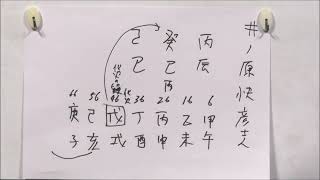 井ノ原快彦
己 癸 丙
巳 巳 辰
丙
66 56 46 36 26 16 6
庚 己 戊 丁 丙 乙 甲
子 亥 戌 酉 申 未 午